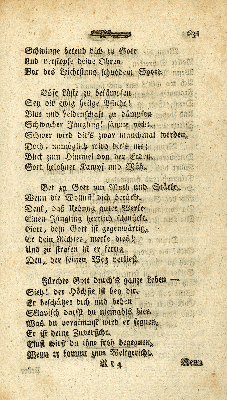 631
Schwinge betend dich zu Gott
Und verstopfe deine Ohren
Vor des Leichtsinns schnödem Spott.
Böse Lüste zu bekämpfen
Sey dir ewig heilge Pflicht!
Blut und Leidenschaft zu dämpfen
Schwacher Jüngling! säume nicht!
Schwer wird dir's zwar manchmal werden,
Doch, unmöglich wird dir's nie!
Blick zum Himmel von der Erden,
Gott belohnet Kampf und Müh.
Bet zu Gott um Muth und Stärke,
Wenn die Wollust dich berückt.
Denk, daß Tugend gute Werke
Einen Jüngling herrlich schmückt.
Gott ist gegenwärtig,
Er dein Richter, merke dies!
Und zu strafen ist er fertig
Den, der seinen Weg verließ.
Fürchte Gott durch's ganze Leben —
Sieh! der Höchste ist bey dir.
Er beschützet dich und
darfst du niemals hier.
Was du vornimmst wird er segnen,
Er ist deine Zuversicht.
Einst wirst du ihm froh begegnen,
Wenn er kommt zum Weltgericht.
R r 4
Wenn